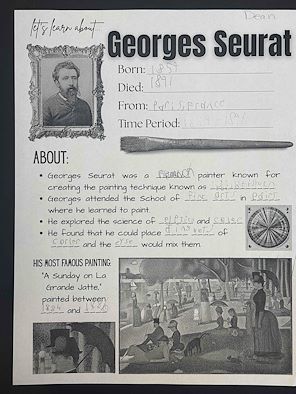 Dean
let's learn about...
Georges Seurat
Born: 1859
Died: 1891
From: Paris France
Time Period:
ABOUT:
Georges Seurat was a French painter known for
creating the painting technique known as
Georges attended the School of Fine Art in Paris
where he learned to paint.
He explored the science of optics and color
He found that he could place of
color and the would mix them.
HIS MOST FAMOUS PAINTING:
"A Sunday on La
Grande Jatte,"
painted between
1884 and